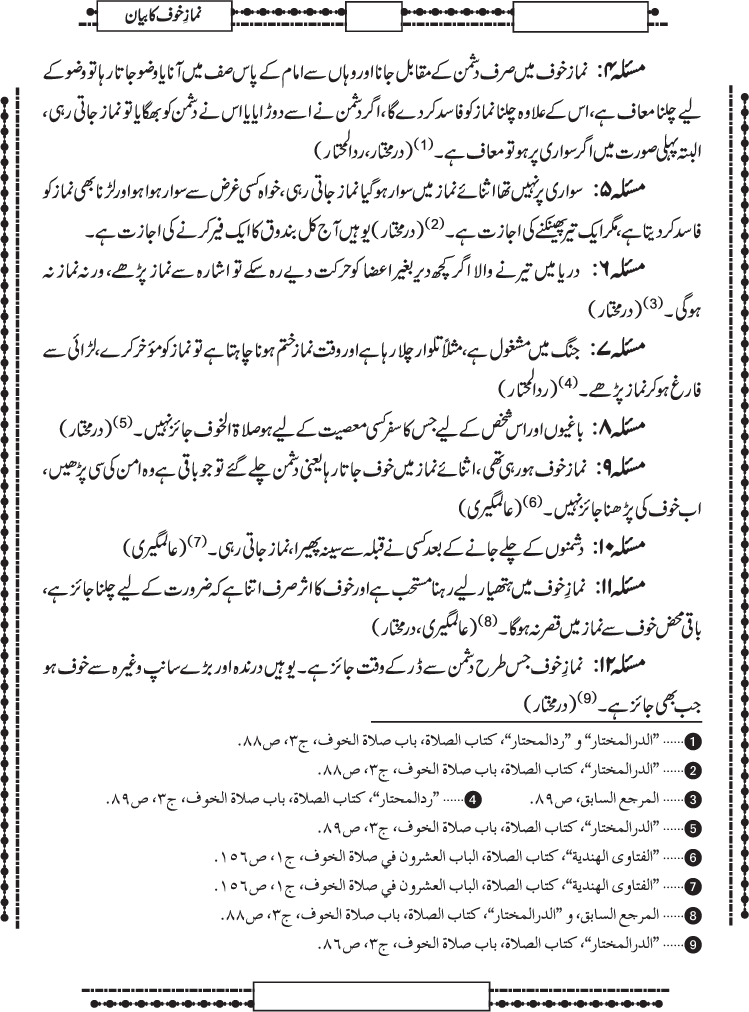 نمازِ خوف کا بیان
مسئلہ ۴: نماز خوف میں صرف دشمن کے مقابل جانا اور وہاں سے امام کے پاس صف میں آنا یا وضو جاتا رہا تو وضو کے
لیے چلنا معاف ہے، اس کے علاوہ چلنا نماز کو فاسد کر دے گا، اگر دشمن نے اسے دوڑایا یا اس نے دشمن کو بھگایا تو نماز جاتی رہی،
البتہ پہلی صورت میں اگر سواری پر ہو تو معاف ہے۔ (1) (درمختار، ردالمحتار)
مسئلہ ۵: سواری پر نہیں تھا اثنائے نماز میں سوار ہوگیا نماز جاتی رہی، خواہ کسی غرض سے سوار ہوا ہو اور لڑنا بھی نماز کو
فاسد کر دیتا ہے، مگر ایک تیر پھینکنے کی اجازت ہے۔ (2) (درمختار) یوہیں آج کل بندوق کا ایک فیر کرنے کی اجازت ہے۔
مسئلہ ۶: دریا میں تیرنے والا اگر کچھ دیر بغیر اعضا کو حرکت دیے رہ سکے تو اشارہ سے نماز پڑھے، ورنہ نماز نہ
ہوگی۔ (3) (درمختار)
مسئلہ ۷: جنگ میں مشغول ہے، مثلاً تلوار چلا رہا ہے اور وقت نماز ختم ہونا چاہتا ہے تو نماز کو مؤخر کرے، لڑائی سے
فارغ ہو کر نماز پڑھے۔ (4) (ردالمحتار)
مسئلہ ۸: باغیوں اور اس شخص کے لیے جس کا سفر کسی معصیت کے لیے ہو صلاۃ الخوف جائز نہیں۔ (5) (درمختار)
مسئلہ ۹: نماز خوف ہورہی تھی، اثنائے نماز میں خوف جاتا رہا یعنی دشمن چلے گئے تو جو باقی ہے وہ امن کی سی پڑھیں،
اب خوف کی پڑھنا جائز نہیں۔ (6) (عالمگیری)
مسئلہ ۱۰: دشمنوں کے چلے جانے کے بعد کسی نے قبلہ سے سینہ پھیرا، نماز جاتی رہی۔ (7) (عالمگیری)
مسئلہ ۱۱: نمازِ خوف میں ہتھیار لیے رہنا مستحب ہے اور خوف کا اثر صرف اتنا ہے کہ ضرورت کے لیے چلنا جائز ہے،
باقی محض خوف سے نماز میں قصر نہ ہوگا۔ (8) (عالمگیری، درمختار)
مسئلہ ۱۲: نمازِ خوف جس طرح دشمن سے ڈر کے وقت جائز ہے۔ یوہیں درندہ اور بڑے سانپ وغیرہ سے خوف ہو
جب بھی جائز ہے۔ (9) (درمختار)
1 ...... "الدرالمختار" و "ردالمحتار"، كتاب الصلاة، باب صلاة الخوف، ج٣، ص٨٨.
2 ...... "الدرالمختار"، كتاب الصلاة، باب صلاة الخوف، ج٣، ص٨٨.
3 ...... المرجع السابق، ص٨٩. 4 ...... "ردالمحتار"، كتاب الصلاة، باب صلاة الخوف، ج٣، ص٨٩.
5 ...... "الدرالمختار"، كتاب الصلاة، باب صلاة الخوف، ج٣، ص٨٩.
6 ...... "الفتاوى الهندية"، كتاب الصلاة، الباب العشرون في صلاة الخوف، ج١، ص١٥٦.
7 ...... "الفتاوى الهندية"، كتاب الصلاة، الباب العشرون في صلاة الخوف، ج١، ص١٥٦.
8 ...... المرجع السابق، و "الدرالمختار"، كتاب الصلاة، باب صلاة الخوف، ج٣، ص٨٨.
9 ...... "الدرالمختار"، كتاب الصلاة، باب صلاة الخوف، ج٣، ص٨٦.